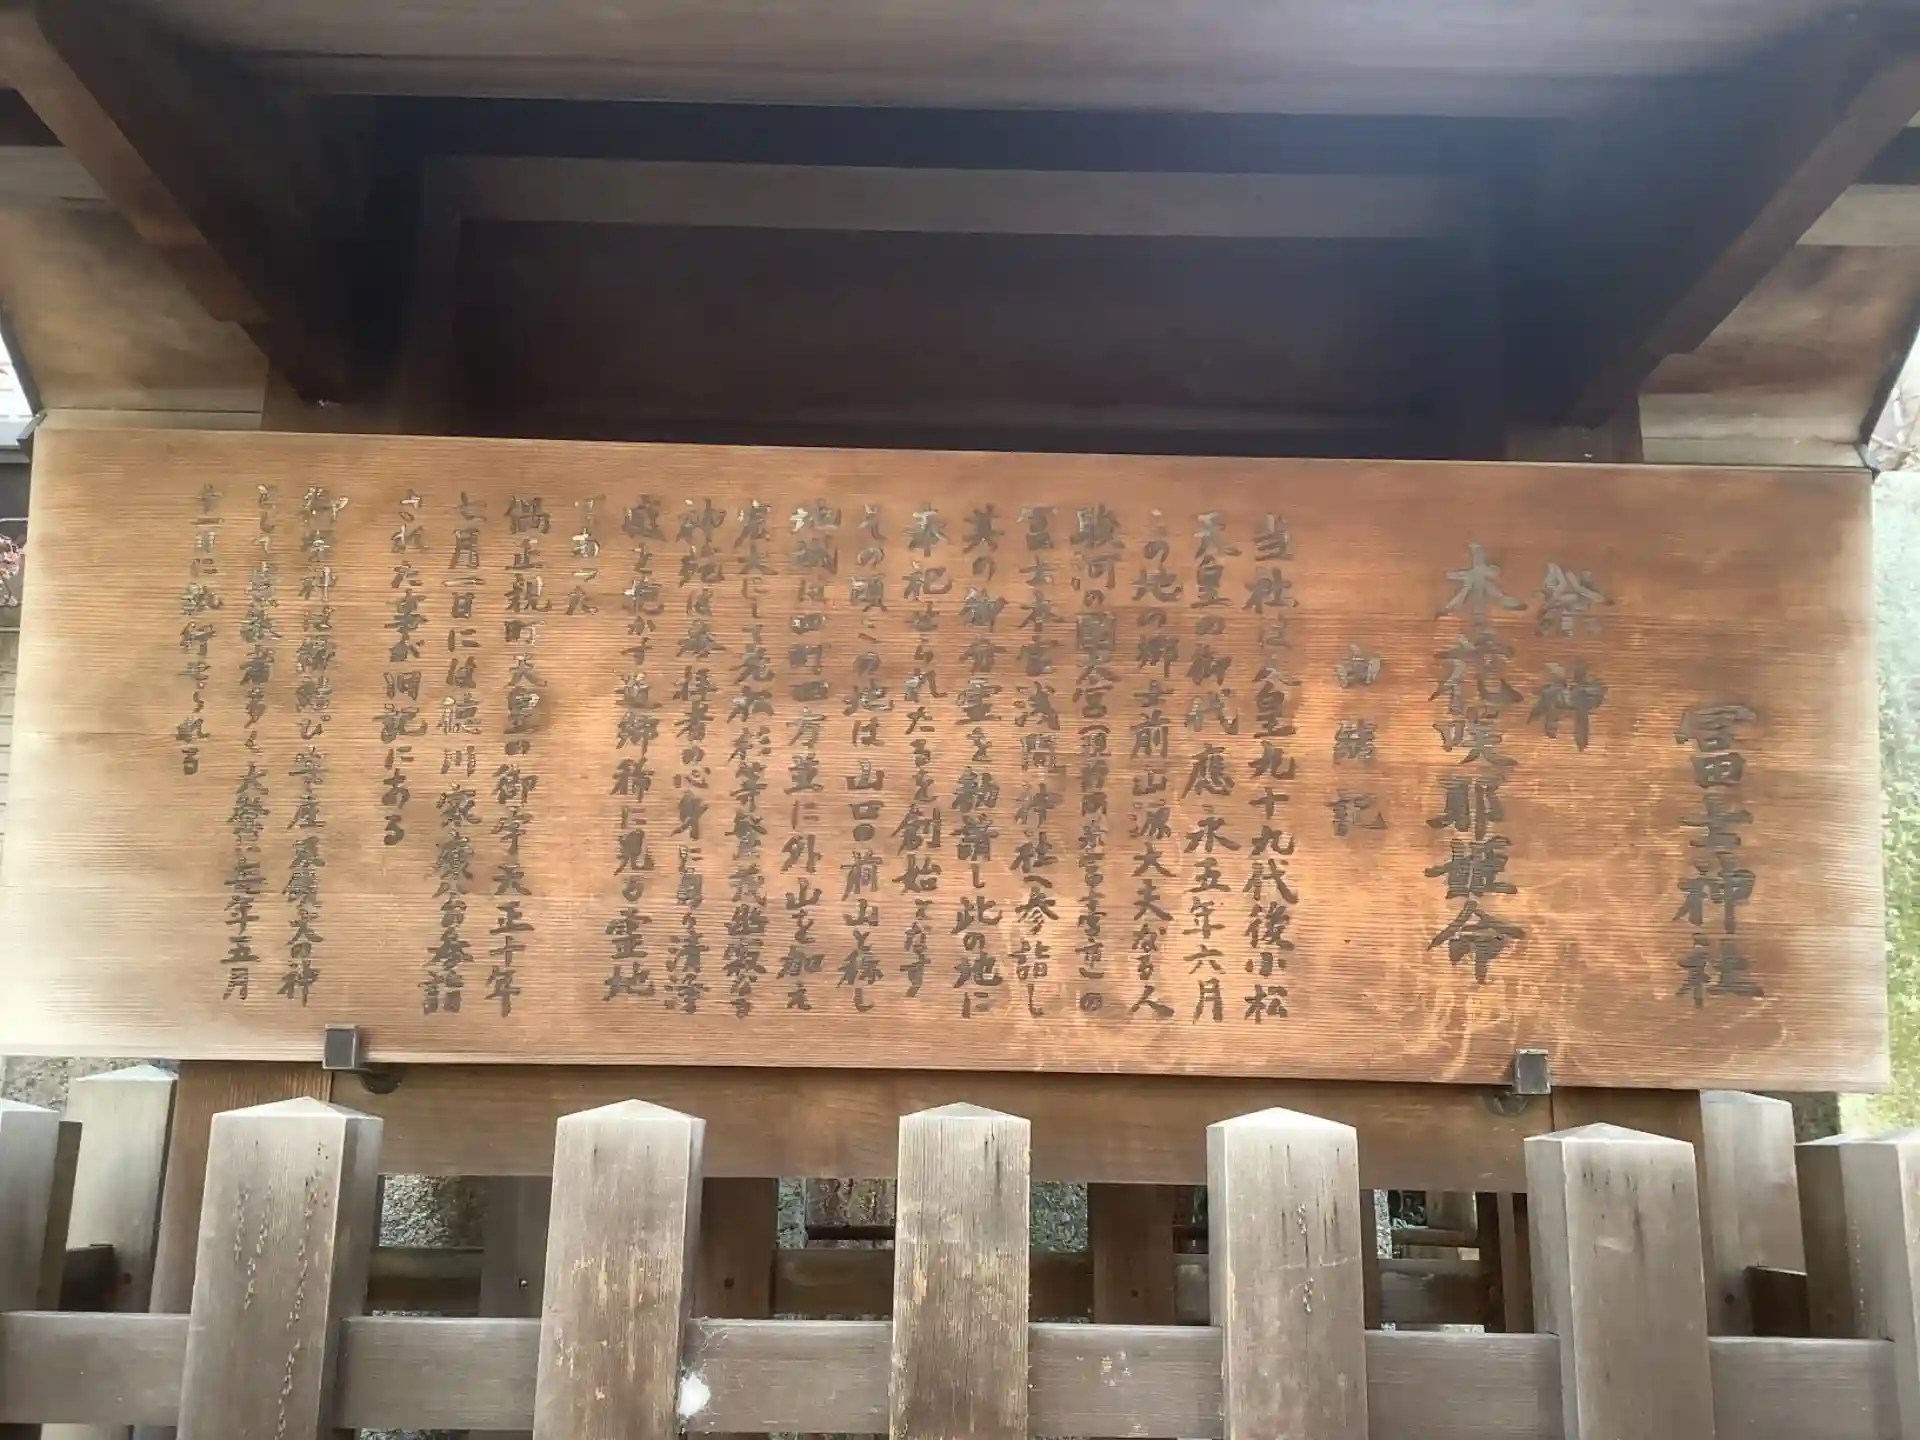 冨士神社
祭神
木花咲耶姫命
由緒記
当社は人皇九十九代後小松
天皇の御代應永五年六月
この地の郷士前山源大夫なる人
駿河の国大宮(現静岡県富士宮市)の
冨士本宮浅間神社へ参詣し
其の御分霊を勧請し此の地に
奉祀せられたるを創始となす
その頃この地は山口前山と称し
地域は四町四方並に外山を加え
宏大にして老松杉等繁茂幽寂なる
神苑は参拝者の心身に自ら清浄
感を抱かす近郷稀に見る霊地
であった
偶正親町天皇の御宇天正十年
七月一日には徳川家康公台参詣
された事が旧記にある
御祭神は縁結び安産火鎮火の神
として崇敬者多く大祭は毎年五月
十一日に執行せられる